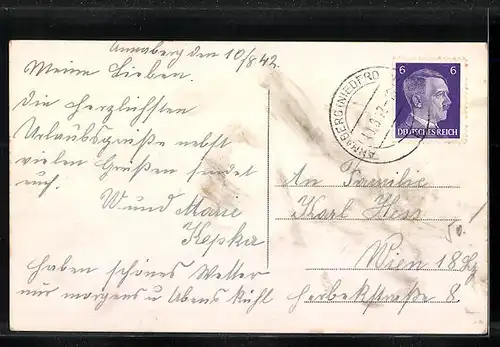 Annaberg den 10/8 42.
Meine Lieben.
Die herzlichsten
Urlaubsgrüße nebst
vielen Grüßen sendet
euch.
W und Marie
Kepka
haben schönes Wetter
nur morgens u Abens kühl
ANNABERG (NIEDERD
6 6
DEUTSCHES REICH
An Familie
Karl Hess
50.-
Wien 18
Herbekstraße 8